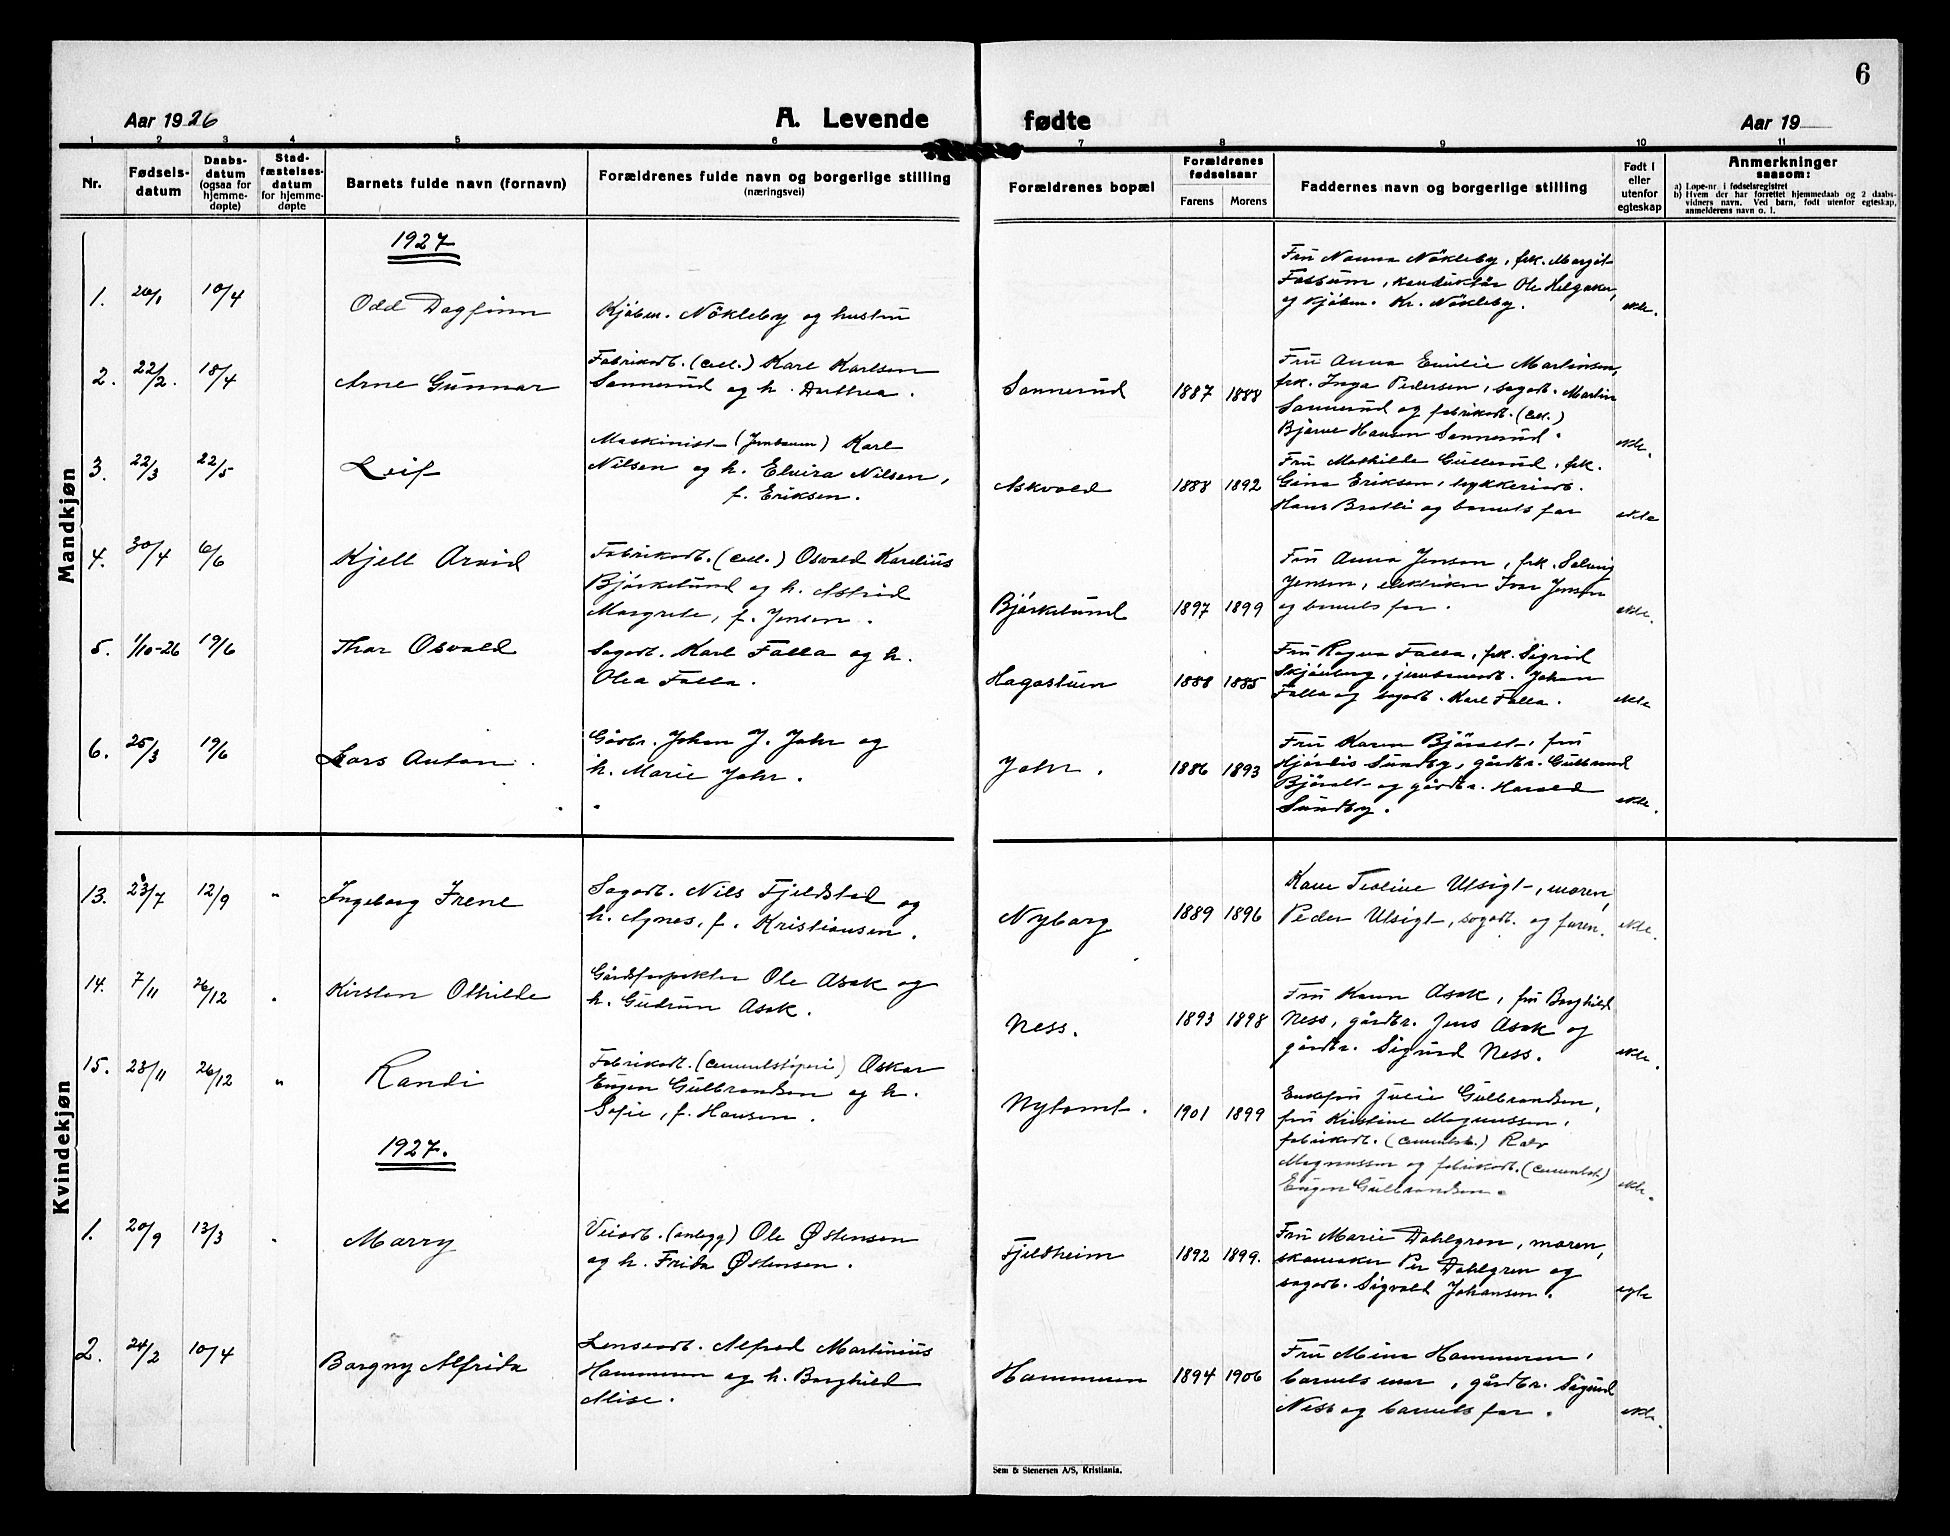 6
Aar 1926
A. Levende fødte
Aar 19
1 2 3 4 5 6 7 8 9 10 11
Nr.
Fødselsdatum
Daabsdatum (ogsaa for hjemmedøpte)
Stadfæstelsesdatum for hjemmedøpte
Barnets fulde navn (fornavn)
Forældrenes fulde navn og borgerlige stilling
(næringsvei)
Forældrenes bopæl
Forældrenes fødselsaar
Farens Morens
Faddernes navn og borgerlige stilling
Født i eller utenfor egteskap
Anmerkninger
saasom:
a) Løpe-nr. i fødselsregistret
b) Hvem der har forrettet hjemmedaab og 2 daabsvidners navn. Ved barn, født utenfor egteskap, anmelderens navn o. l.
Mandkjøn
1927
1. 26/1 10/4 Odd Dagfinn
Kjøbm. Nökleby og hustru
Fru Nanna Nökleby, frk. Margit
Fossum, konduktör Ole Helgaker,
og kjøbm. Kr. Nökleby.
ekte.
2. 22/2. 18/4 Arne Gunnar
Fabrikarb. (cell.) Karl Karlsen
Sannerud og h. Anthea.
Sannerud 1887 1888
Fru Anna Emilie Martinsen,
frk. Inga Pedersen, sagarb. Martin
Sannerud og fabrikarb. (cell.)
Bjarne Hansen Sannerud.
ekte.
3. 22/3 22/5 Leif
Maskinist (Jernbanen) Karl
Nilsen og h. Elvira Nilsen,
f. Eriksen.
Askvold 1888 1892
Fru Mathilde Gullerud, frk.
Gina Eriksen, trykkeriarb.
Hans Bratli og barnets far
ekte
4. 30/4 6/6 Kjell Arvid
Fabrikarb. (cell.) Osvald Karelius
Bjørkelund og h. Astrid
Margrete, f. Jensen.
Bjørkelund 1897 1899
Fru Anna Jensen, frk. Solveig
Jensen, elektriker Ivar Jensen
og barnets far.
ekte.
5. 1/10-26 19/6 Thor Osvald
Sagarb. Karl Falla og h.
Olea Falla.
Hagastuen 1888 1885
Fru Ragna Falla, frk. Sigrid
Skjønberg, jernbanearb. Johan
Falla og sagarb. Karl Falla.
ekte
6. 25/3 19/6 Lars Anton.
Gårbr. Johan J. Jahr og
h. Marie Jahr.
Jahr. 1886 1893
Fru Karen Björalt, fru
Hjørdis Sundby, gårdbr. Gulbrand
Björalt og gårdbr. Harald
Sundby.
ekte.
Kvindekjøn
13. 23/7 12/9 " Ingeborg Irene
Sagarb. Nils Fjeldstad og
h. Agnes, f. Kristiansen.
Nyborg 1889 1896
Kone Teoline Utsigt, moren,
Peder Utsigt, sagarb. og faren.
ekte.
14. 7/11 26/12 " Kirsten Othilde
Gårdforpakter Ole Asak og
h. Gudrun Asak.
Ness. 1893 1898
Fru Karen Asak, fru Borghild
Ness, gårdbr. Jens Asak og
gårdbr. Sigurd Ness.
ekte.
15. 23/11 26/12 " Randi
Fabrikarb. (cementstøperi) Oskar
Eugen Gulbrandsen og h.
Sofie, f. Hansen.
Nytomt. 1901 1899
Enkefru Julie Gulbrandsen,
fru Kristine Magnussen,
fabrikarb. (cementst.)
Magnussen og fabrikarb. (cementst.)
Eugen Gulbrandsen.
ekte.
1927.
1. 20/9 13/3 " Marry
Veiarb. (anlegg) Ole Østensen
og h. Frida Østensen.
Fjeldheim 1892 1899.
Fru Marie Dahlgren, moren,
skomaker Per Dahlgren og
sagarb. Sigvald Johansen.
egte
2. 24/2 10/4 Borgny Alfrida
Lensearb. Alfred Martinius
Hammeren og h. Borghild
Alise.
Hammeren 1894 1906
Fru Mina Hammeren,
barnets mor, gårdbr. Sigurd
Ness og barnets far.
ekte.
Sem & Stenersen A/S, Kristiania.